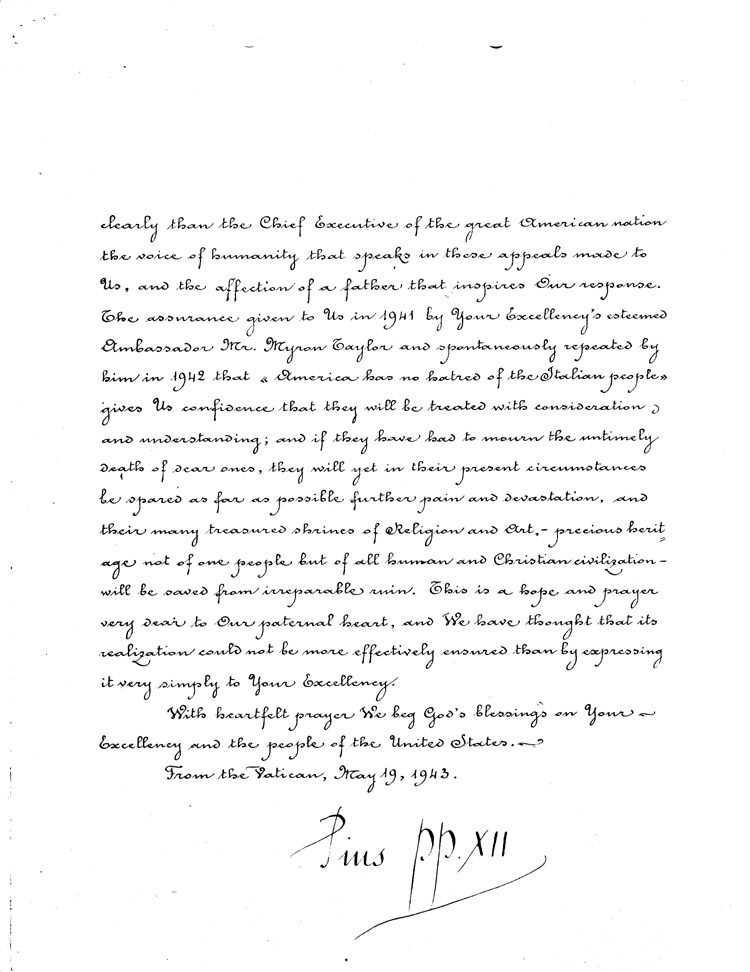 clearly than the Chief Executive of the great American nation
the voice of humanity that speaks in these appeals made to
Us, and the affection of a father that inspires Our response.
The assurance given to Us in 1941 by Your Excellency's esteemed
Ambassador Mr. Myron Taylor and spontaneously repeated by
him in 1942 that « America has no hatred of the Italian people»
gives Us confidence that they will be treated with consideration
and understanding; and if they have had to mourn the untimely
death of dear ones, they will yet in their present circumstances
be spared as far as possible further pain and devastation, and
their many treasured shrines of Religion and Art,- precious herit=
age not of one people but of all human and Christian civilization-
will be saved from irreparable ruin. This is a hope and prayer
very dear to Our paternal heart, and We have thought that its
realization could not be more effectively ensured than by expressing
it very simply to Your Excellency.
With heartfelt prayer We beg God's blessings on Your
Excellency and the people of the United States.
From the Vatican, May 19, 1943.
Pius pp. XII